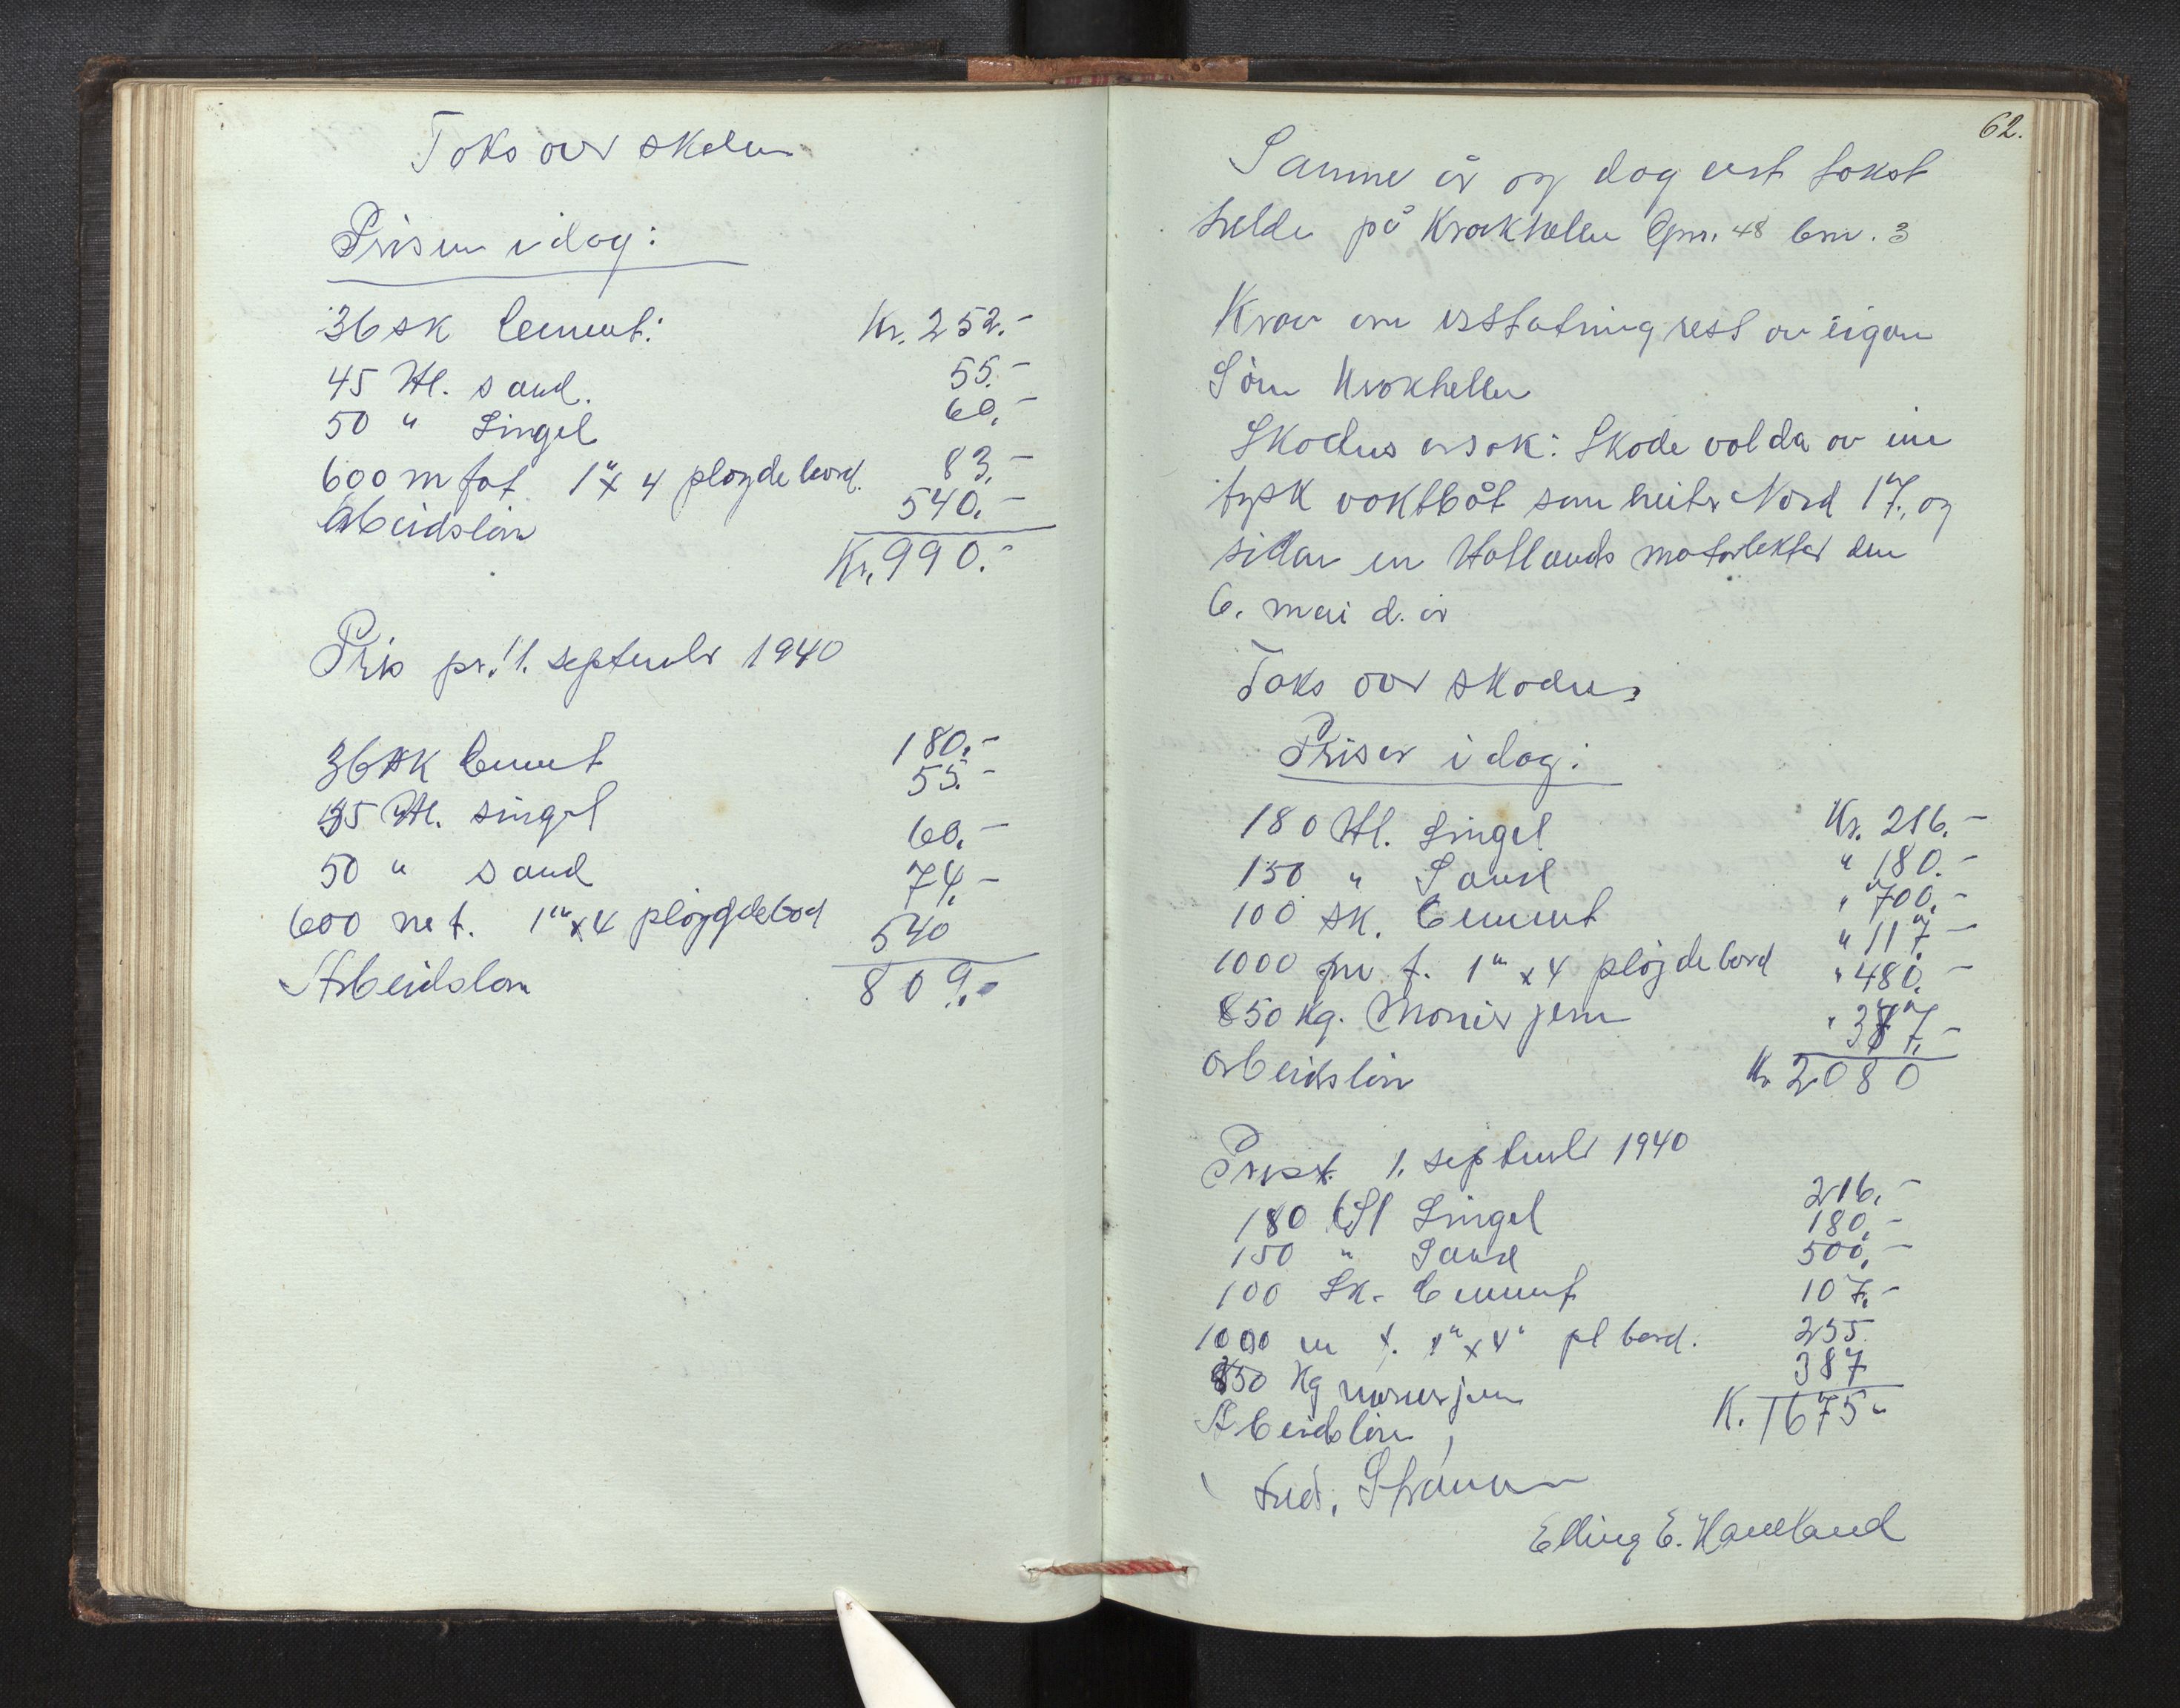 Taks over skaden
Prisen idag:
36 sk Cement: Kr. 252.-
45 Hl. sand. 55.-
50 " Singel 60.-
600 m fot 1" x 4 pløyde bord. 83.-
Arbeidsløn 540.-
Kr. 990.-
Pris pr. 1. september 1940
36 sk Cement 180.-
35 Hl. singel 55.-
50 " sand 60.-
600 m f. 1" x 4 pløygde bord 74.-
Arbeidsløn 540
809.-
62.
Samme år og dag vert takst
helde på Krokhellen Gnr. 48 bnr. 3
Krav om erstatning reist av eigaren
Sørn Krokhellen
Skadens orsak: Skade volda av ein
tysk vaktbåt som heiter Nord 17, og
sidan en Hollands motorlekter den
6. mai d. år
Taks over skaden
Priser i dag:
180 Hl. Singel Kr. 216.-
150 " Sand " 180.-
100 sk. Cement " 700.-
1000 m f. 1" x 4 pløjde bord " 117.-
850 kg. Monier jern " 480.-
Arbeidsløn " 387.-
Kr 2080
Pris pr. 1. september 1940
180 Hl Singel 216.-
150 " Sand 180.-
100 Sk. Cement 500.-
1000 m f. 1" x 4" pl bord. 107.-
850 Kg monierjern 255.
Arbeidsløn 387
K. 1675.-
Fred. Straume
Elling E. Haveland